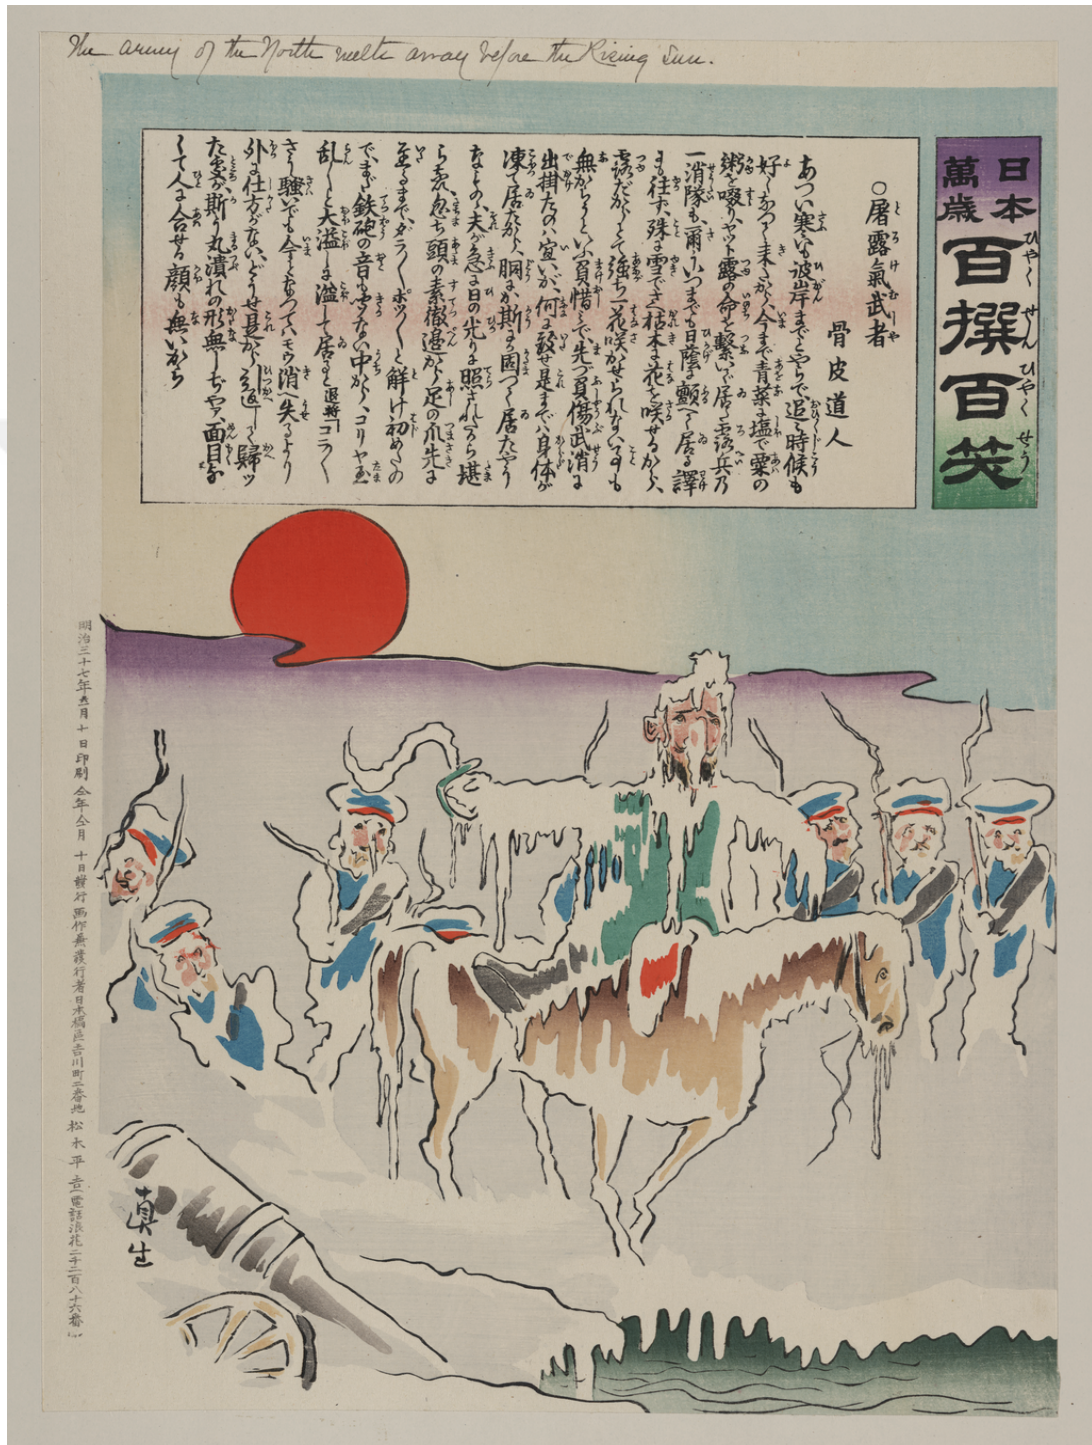 The army of the North melts away before the Rising Sun.
日本萬歳
百撰百笑
ひやくせんひやくせう
○屠露氣武者
骨皮道人
あつい寒いも彼岸までとやらで、追々時候も
好くなつて来たから、今まで青菜に塩で粟の
粥を啜り、ヤット露の命を繋いで居た露兵乃
一消隊も、爾ういつまでも日蔭に顫へて居る譯
にも往ず、殊に雪でさへ枯木に花を咲せるから、
露だからとて強ち一花咲かせられないでも
無からうといふ負惜みで、先づ負傷武消に
出掛たのハ宜いが、何に致せ是までハ身体が
凍て居たから、胴か斯か固つて居たやう
なものゝ、夫が急に日の光りに照されたから堪
らない、忽ち頭の素徹邊から足の爪先に
至るまで、ダラ〳〵ポツ〳〵と解け初めたの
で、まだ鉄砲の音も聞ない中から、コリヤ玉
乱んと大溢しに溢して居ると退将「コラ〳〵
さう騒いでも今となつてハモウ消へ失るより
外に仕方がない、どうせ是から引返して歸ツ
た處が、斯う丸潰れの形無しぢやア、面目な
くて人に合せる顔も無いから
明治三十七年 月十日印刷 仝年仝月十日發行 画作兼發行者日本橋區吉川町二番地 松木平吉 電話浪花二千二百八十六番
真生